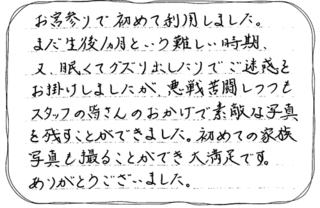 お宮参りで初めて利用しました。
まだ生後1ヵ月という難しい時期、
又、眠くてグズり出したりでご迷惑を
お掛けしましたが、悪戦苦闘しつつも
スタッフの皆さんのおかげで素敵な写真
を残すことができました。初めての家族
写真も撮ることができ大満足です。
ありがとうございました。